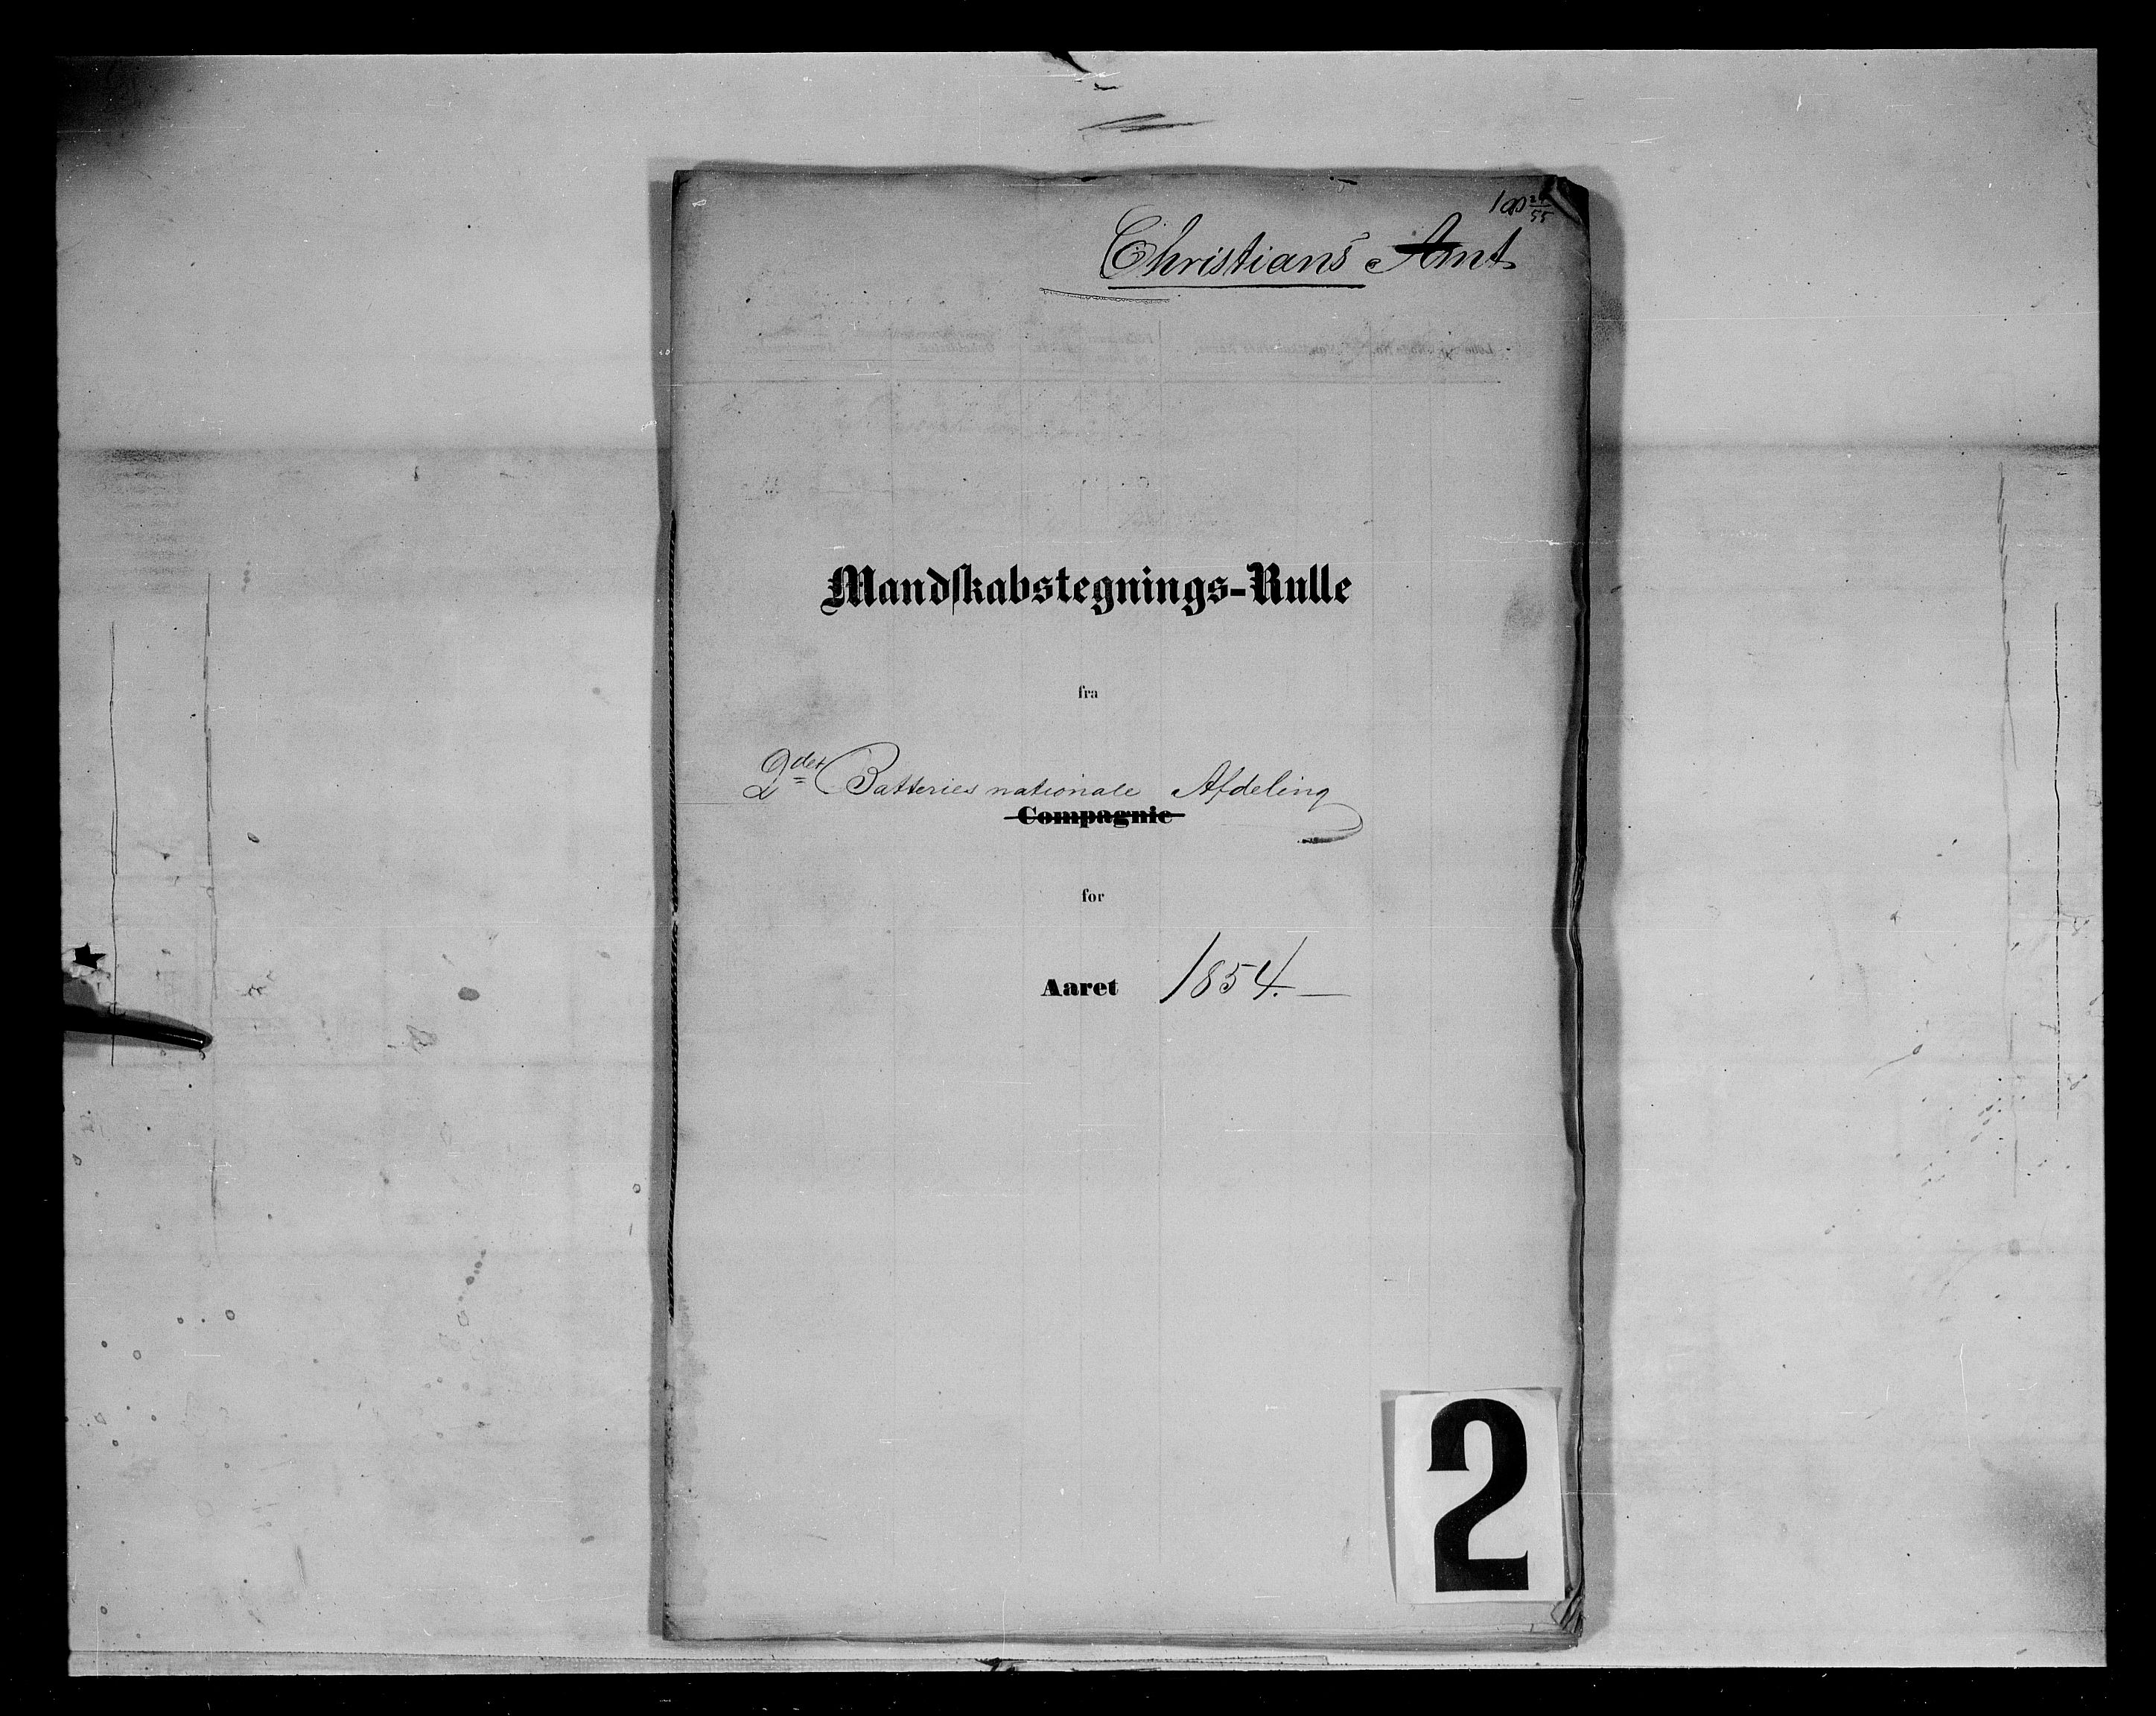 Christians Amt
Mandskabstegnings-Rulle
fra
2det Batteries nationale Afdeling
Compagnie
for
Aaret 1854.
2